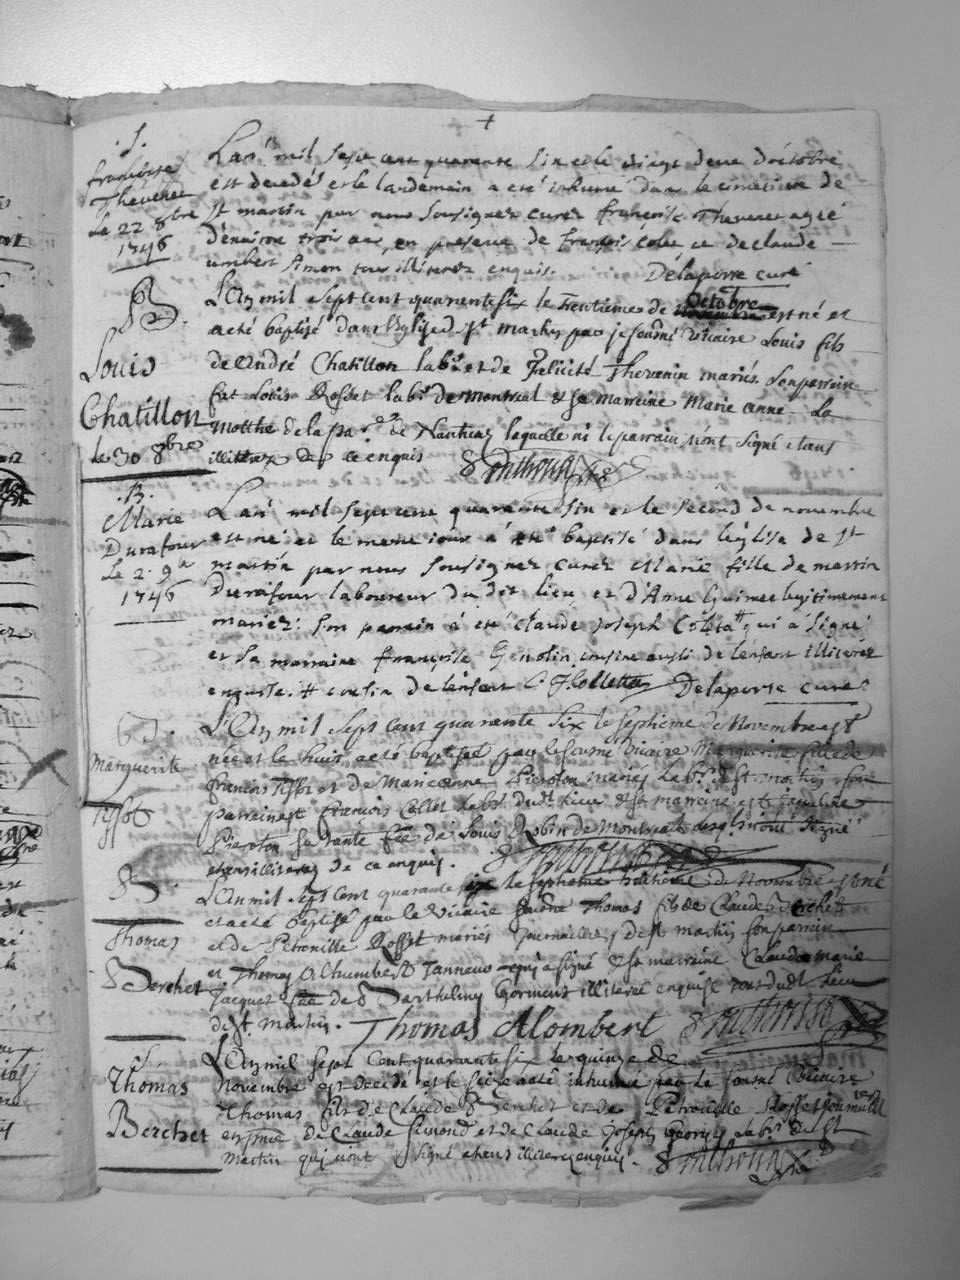 +
.S.
françoise
Thevenet
Le 22 8bre
1746
L'an mil sept cent quarante six et le vingt deux d'octobre
est decedeé et le landemain a eté inhumé dans le cimetiere de
St martin par nous soussignez curez françoise Thevenet ageé
d'environ trois ans, en presence de françois colet et de claude
umbert Amon tous illiterez enquis. Delaporte curé
B.
Louis
Chatillon
le 30 8bre
L'An mil sept cent quarente six le trentieme de octobre est né et
a eté baptisé dans l'Eglise de St martin par je soussigné vicaire Louis fils
de André Chatillon labr et de Felicité Thevenin mariés. Son parrain
fut Louis Rosset labr de montreal & sa marreine Marie anne La
motthe de la par. de Nantua laquelle ni le parrain n'ont signé etans
illitterez de ce enquis
.B.
Marie
Durafour
Le 2 9bre
1746
L'an mil sept cent quarante six et le second de novembre
est né et le meme jour a eté baptisé dans l'eglise de St
martin par nous soussignez curez Marie fille de martin
Durafour laboureur du dit lieu et d'Ane Guimet legitimement
mariez: son parrain a eté claude joseph Coleta # qui a signé
et sa marraine françoise Genolin cousine aussi de l'enfant illiterée
enquise. # cousin de l'enfant C. J. Colletta Delaporte curé
B.
Marguerite
Tissot
L'An mil sept cent quarante six le septieme de Novembre est
née et le huit a eté baptisée par le soussigné vicaire Marguerite fille de
francois Tissot et de Marie anne Pieroton mariés labr de St martin son
parrain est francois Collet labr dudt Lieu & sa marreine est
Pieroton servante de Louis Robin de Montreal lesquels n'ont signé
etans illiterez de ce enquis.
B.
Thomas
Berchet
L'An mil sept cent quarante six le huitieme de Novembre est né
et a eté Baptisé par le vicaire soussigné Thomas fils de Claude Berchet
et de Petronille Rosset mariés journaliers de St martin son parrain
est Thomas Alhumbert Tanneur qui a signé & sa marreine Claudemarie
Jacquet fee de Barthelemy Gormand illiterée enquise tous dudt Lieu
de St. Martin. Thomas Alombert
S.
Thomas
Berchet
L'An mil sept cent quarante six le quinze de
Novembre est decédé et le seize a eté inhumé par le soussé Vicaire
Thomas fils de Claude Berchet et de Petronille Rosset
en pnce de Claude Simond et de Claude Joseph George labrs de St
Martin qui n'ont signé etans illiterez enquis.